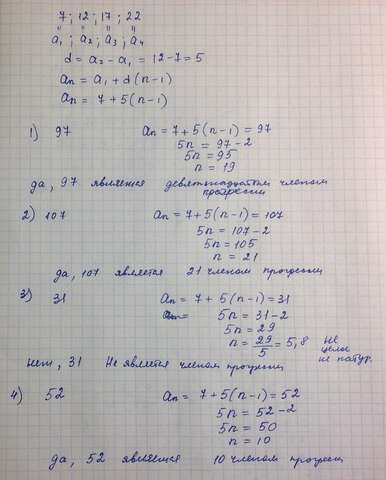 7 ; 12 ; 17 ; 22
" " " "
a₁ ; a₂ ; a₃ ; a₄
d = a₂ - a₁ = 12-7 = 5
an = a₁ + d(n-1)
an = 7+5(n-1)
1) 97 an = 7+5(n-1) = 97
5n = 97-2
5n = 95
n = 19
да, 97 является девятнадцатым членом
прогрессии
2) 107 an = 7+5(n-1) = 107
5n = 107-2
5n = 105
n = 21
да, 107 является 21 членом прогрессии
3) 31 an = 7+5(n-1) = 31
5n = 31-2
5n = 29
n = 29/5 = 5,8 не целое не натур.
нет, 31 не является членом прогрессии
4) 52 an = 7+5(n-1) = 52
5n = 52-2
5n = 50
n = 10
да, 52 является 10 членом прогресси